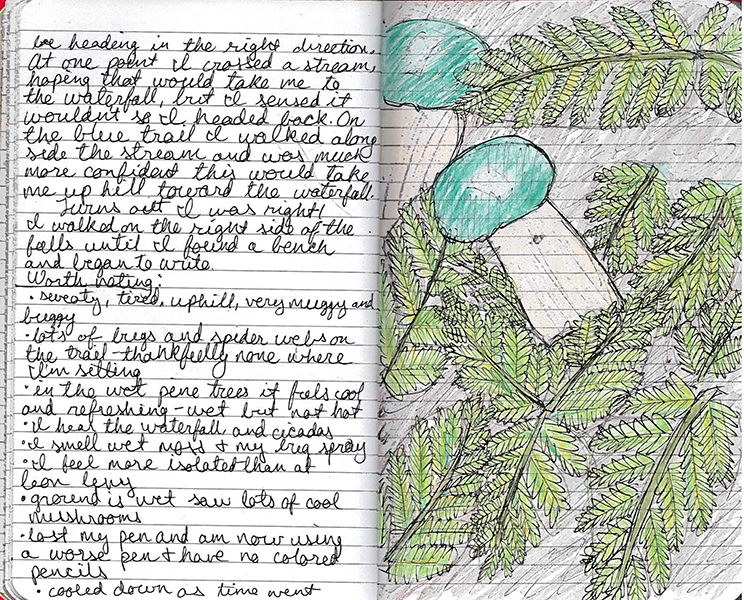 be heading in the right direction.
At one point I crossed a stream,
hoping that would take me to
the waterfall, but I sensed it
wouldn't so I headed back. On
the blue trail I walked along
side the stream and was much
more confident this would take
me up hill toward the waterfall.
Turns out I was right!
I walked on the right side of the
falls until I found a bench
and began to write.
Worth noting:
• sweaty, tired, uphill, very muggy and
buggy
• lots of bugs and spider webs on
the trail - thankfully none where
I'm sitting
• in the wet pine trees it feels cool
and refreshing - wet but not hot
• I hear the waterfall and cicadas
• I smell wet moss + my bug spray
• I feel more isolated than at
Leon Levy
• ground is wet saw lots of cool
mushrooms
• lost my pen and am now using
a worse pen + have no colored
pencils
• cooled down as time went